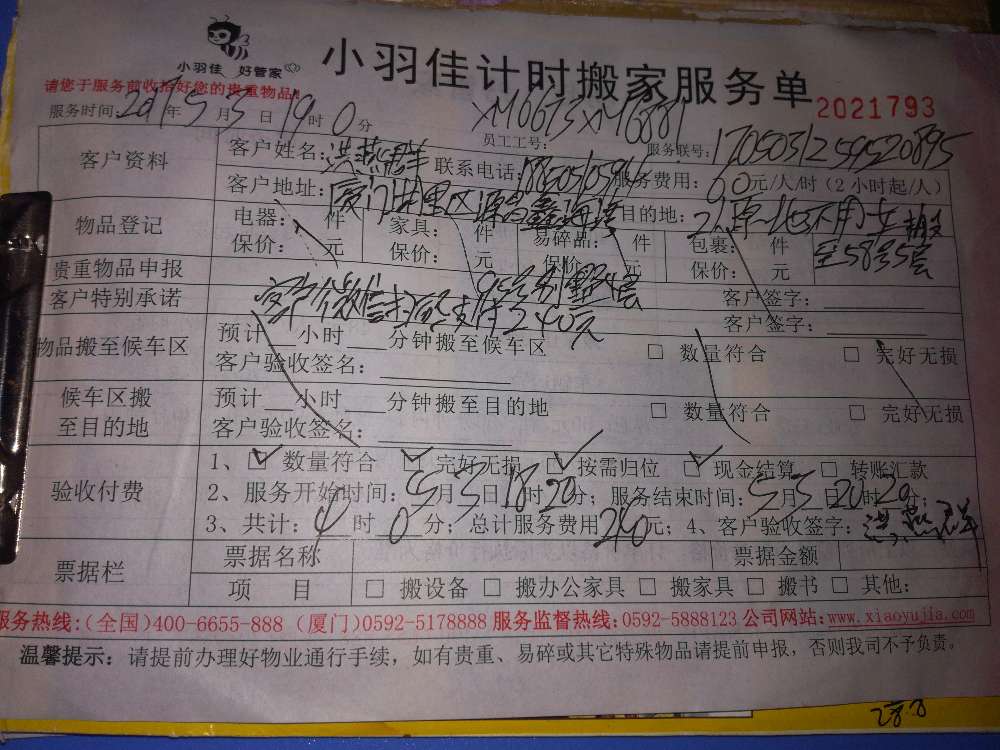 小羽佳 好管家
小羽佳计时搬家服务单
请您于服务前收拾好您的贵重物品!
2021793
服务时间:2017年5月3日19时0分 员工工号: XM0673 XM6881 服务联号: 1705031259520895
客户资料 客户姓名:洪燕群 联系电话: 服务费用:60元/人/时(2小时起/人)
客户地址:厦门 区源昌鑫海湾 目的地:2人原地不用车搬
至58号5层
物品登记 电器: 件 家具: 件 易碎品: 件 包裹: 件
保价: 元 保价: 元 保价: 元 保价: 元
贵重物品申报 客户签字:
客户特别承诺 客户微信 支付240元 客户签字:
物品搬至候车区 预计__小时___分钟搬至候车区 □ 数量符合 □ 完好无损
客户验收签名:
候车区搬至目的地 预计__小时___分钟搬至目的地 □ 数量符合 □ 完好无损
客户验收签名:
验收付费 1、☑ 数量符合 ☑ 完好无损 ☑ 按需归位 ☑ 现金结算 □ 转账汇款
2、服务开始时间:5月3日18时20分;服务结束时间:5月3日20时20分;
3、共计:4时0分;总计服务费用240元;4、客户验收签字:洪燕群
票据栏 票据名称 票据金额
项 目 □ 搬设备 □ 搬办公家具 □ 搬家具 □ 搬书 □ 其他:
服务热线:(全国)400-6655-888 (厦门)0592-5178888 服务监督热线:0592-5888123 公司网站:www.xiaoyujia.com
温馨提示:请提前办理好物业通行手续,如有贵重、易碎或其它特殊物品请提前申报,否则我司不予负责。